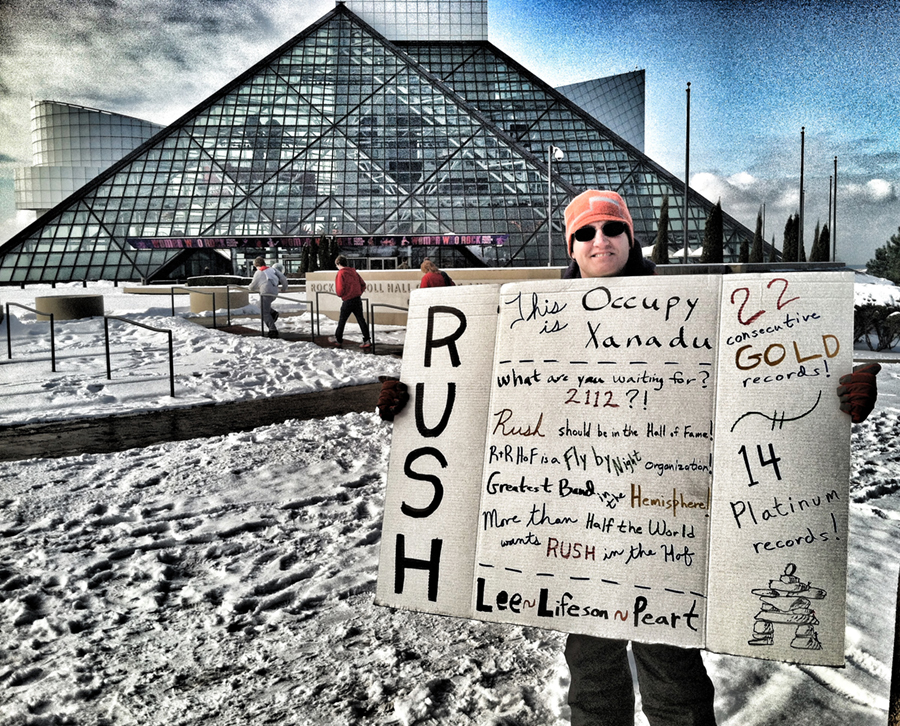 WOMEN WHO ROCK
WOMEN WHO ROCK
ROCK ROLL HALL
RUSH
This is Occupy
Xanadu
What are you waiting for?
2112?!
Rush should be in the Hall of Fame!
R+R HoF is a Fly by Night organization!
Greatest Band in the Hemisphere!
More than Half the World
wants RUSH in the HoF
Lee~Lifeson~Peart
22
consecutive
GOLD
records!
14
Platinum
records!